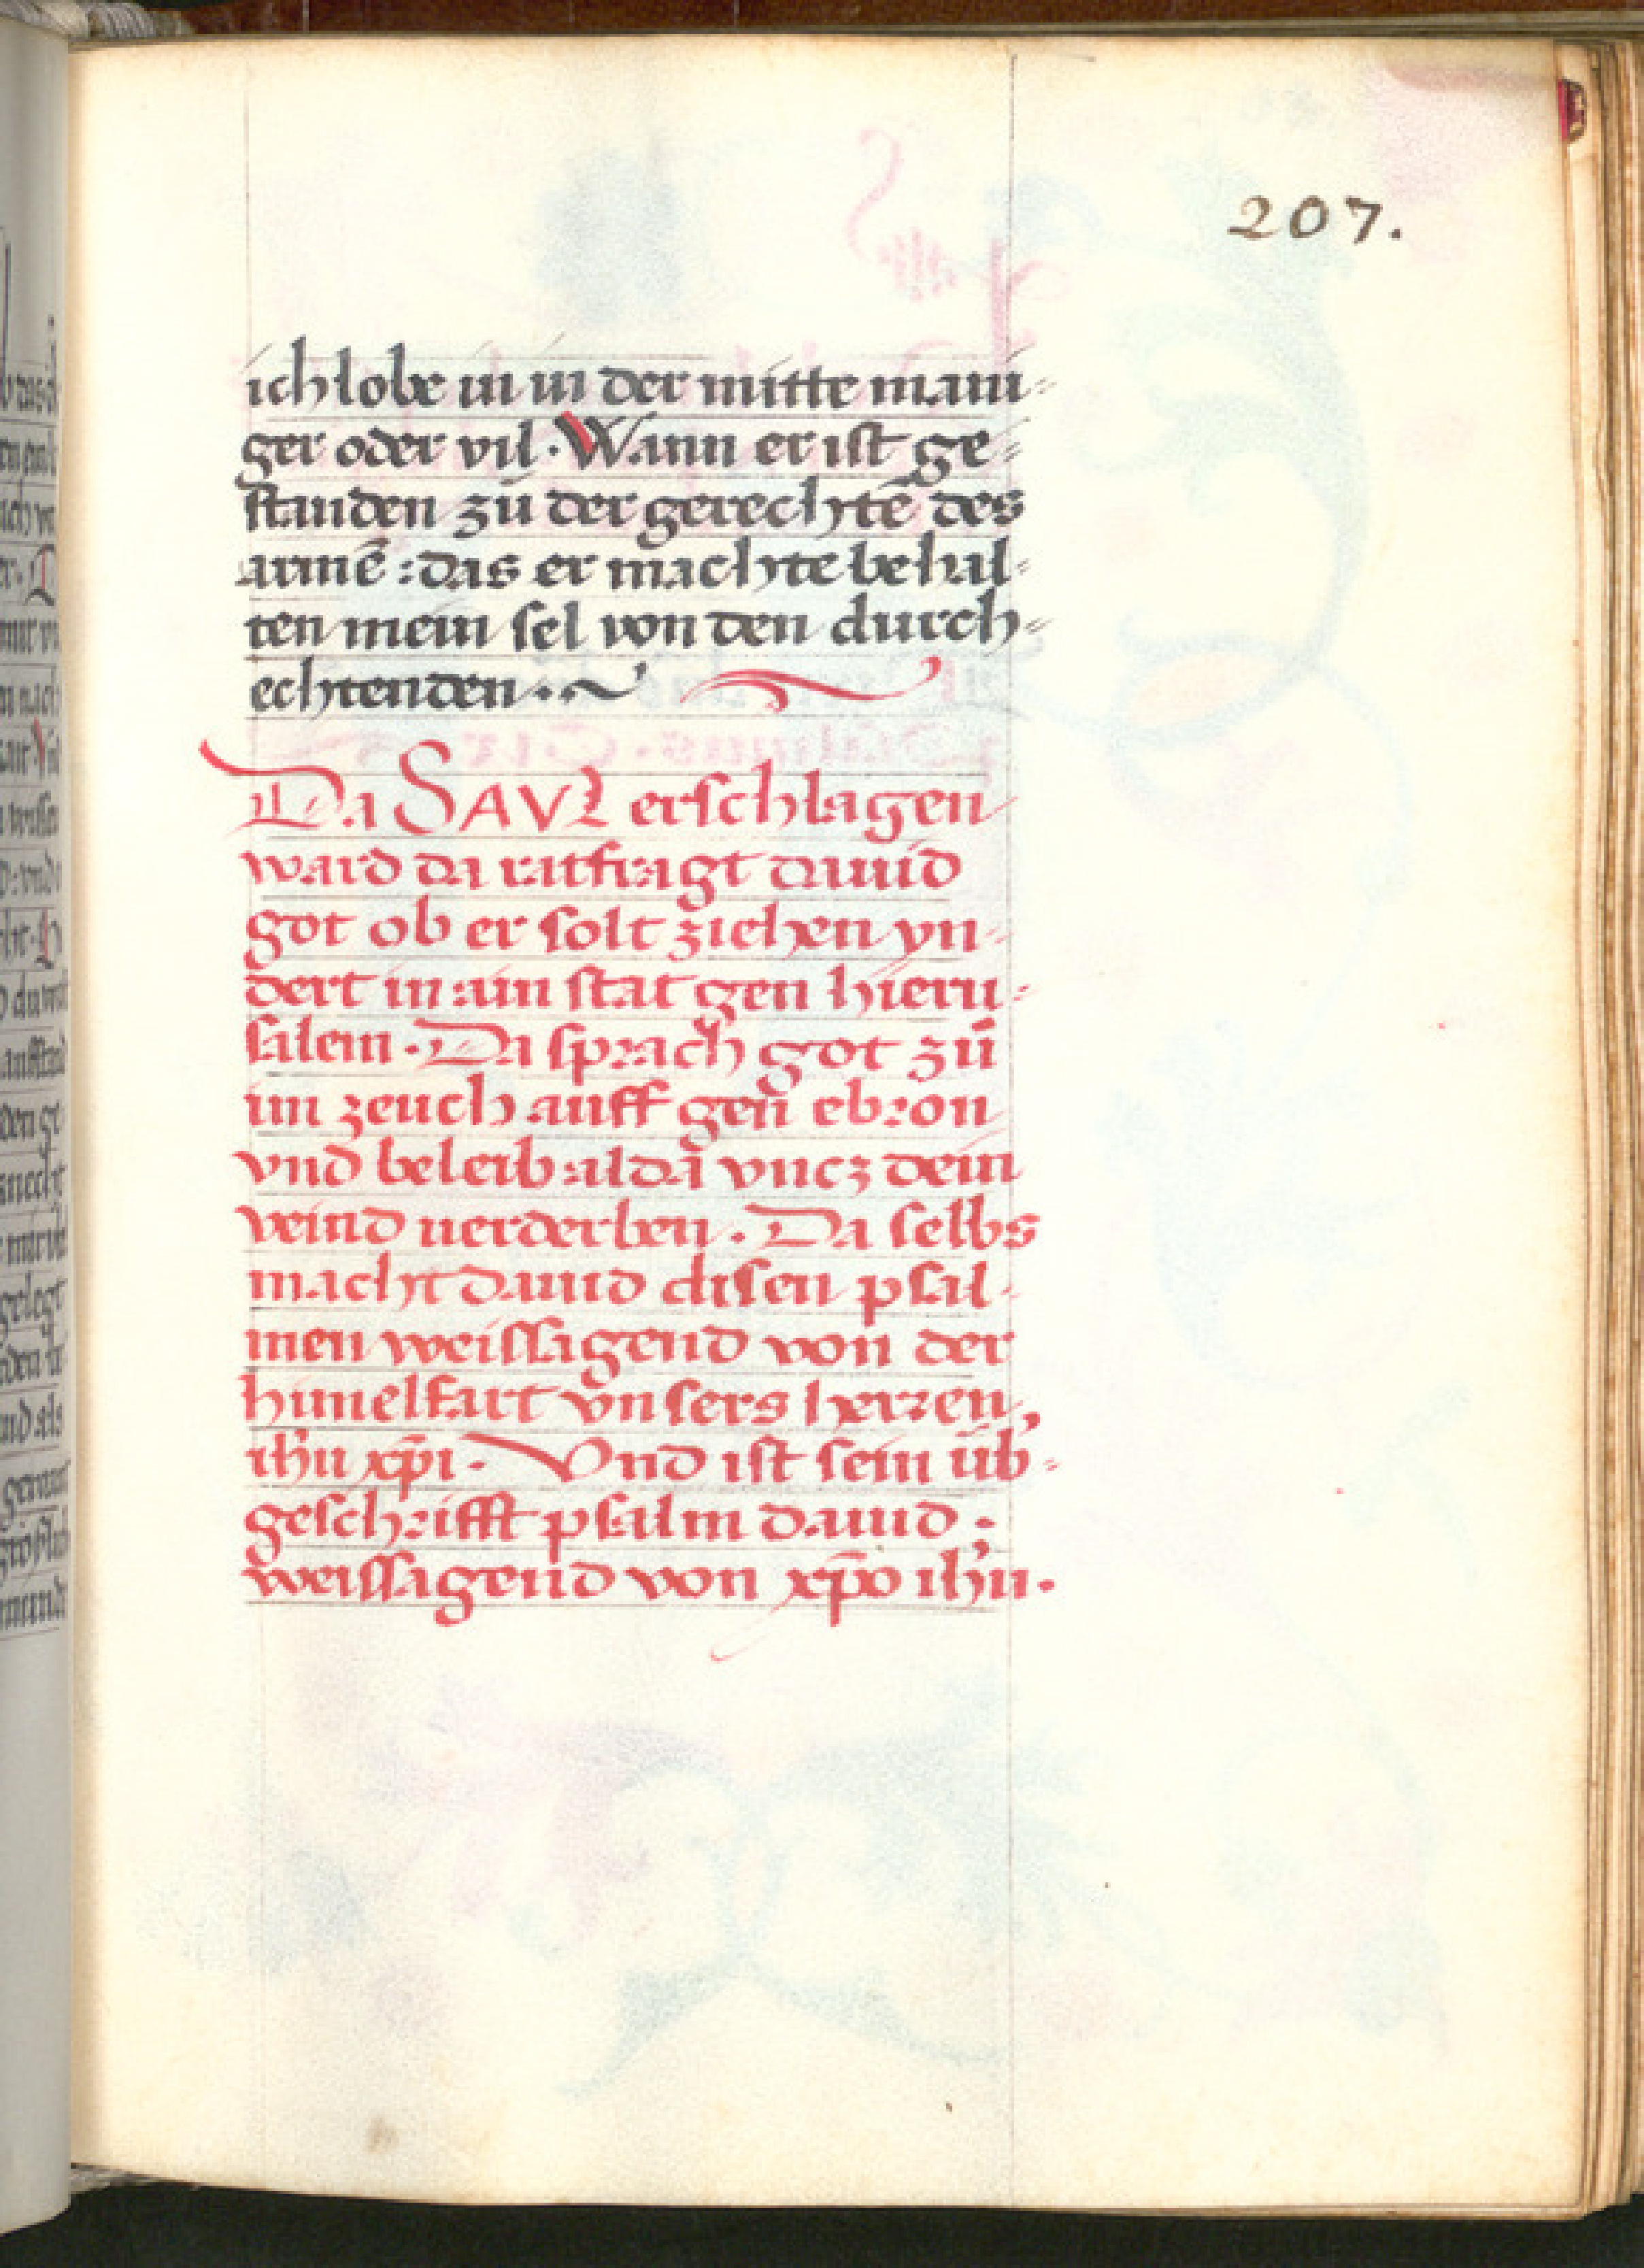 207.
ich lobe in in der mitte mani-
ger oder vil · Wann er ist ge-
standen zů der gerechtē des
armē : das er machte behal-
ten mein sel von den durch-
echtenden ··~
Da SAVL erschlagen
ward da ratfragt dauid
got ob er solt ziehen yn-
dert in ain stat gen hieru-
salem · Da sprach got zů
im zeuch auff gen̄ ebron
vnd beleib alda vncz dein
veind uerderben · Da selbs
macht dauid disen psal-
men weissagend von der
himelfart vnsers herren,
ih̄u xp̄i · Vnd ist sein üb-
geschrifft psalm dauid :
weissagend von xp̄o ih̄u ·